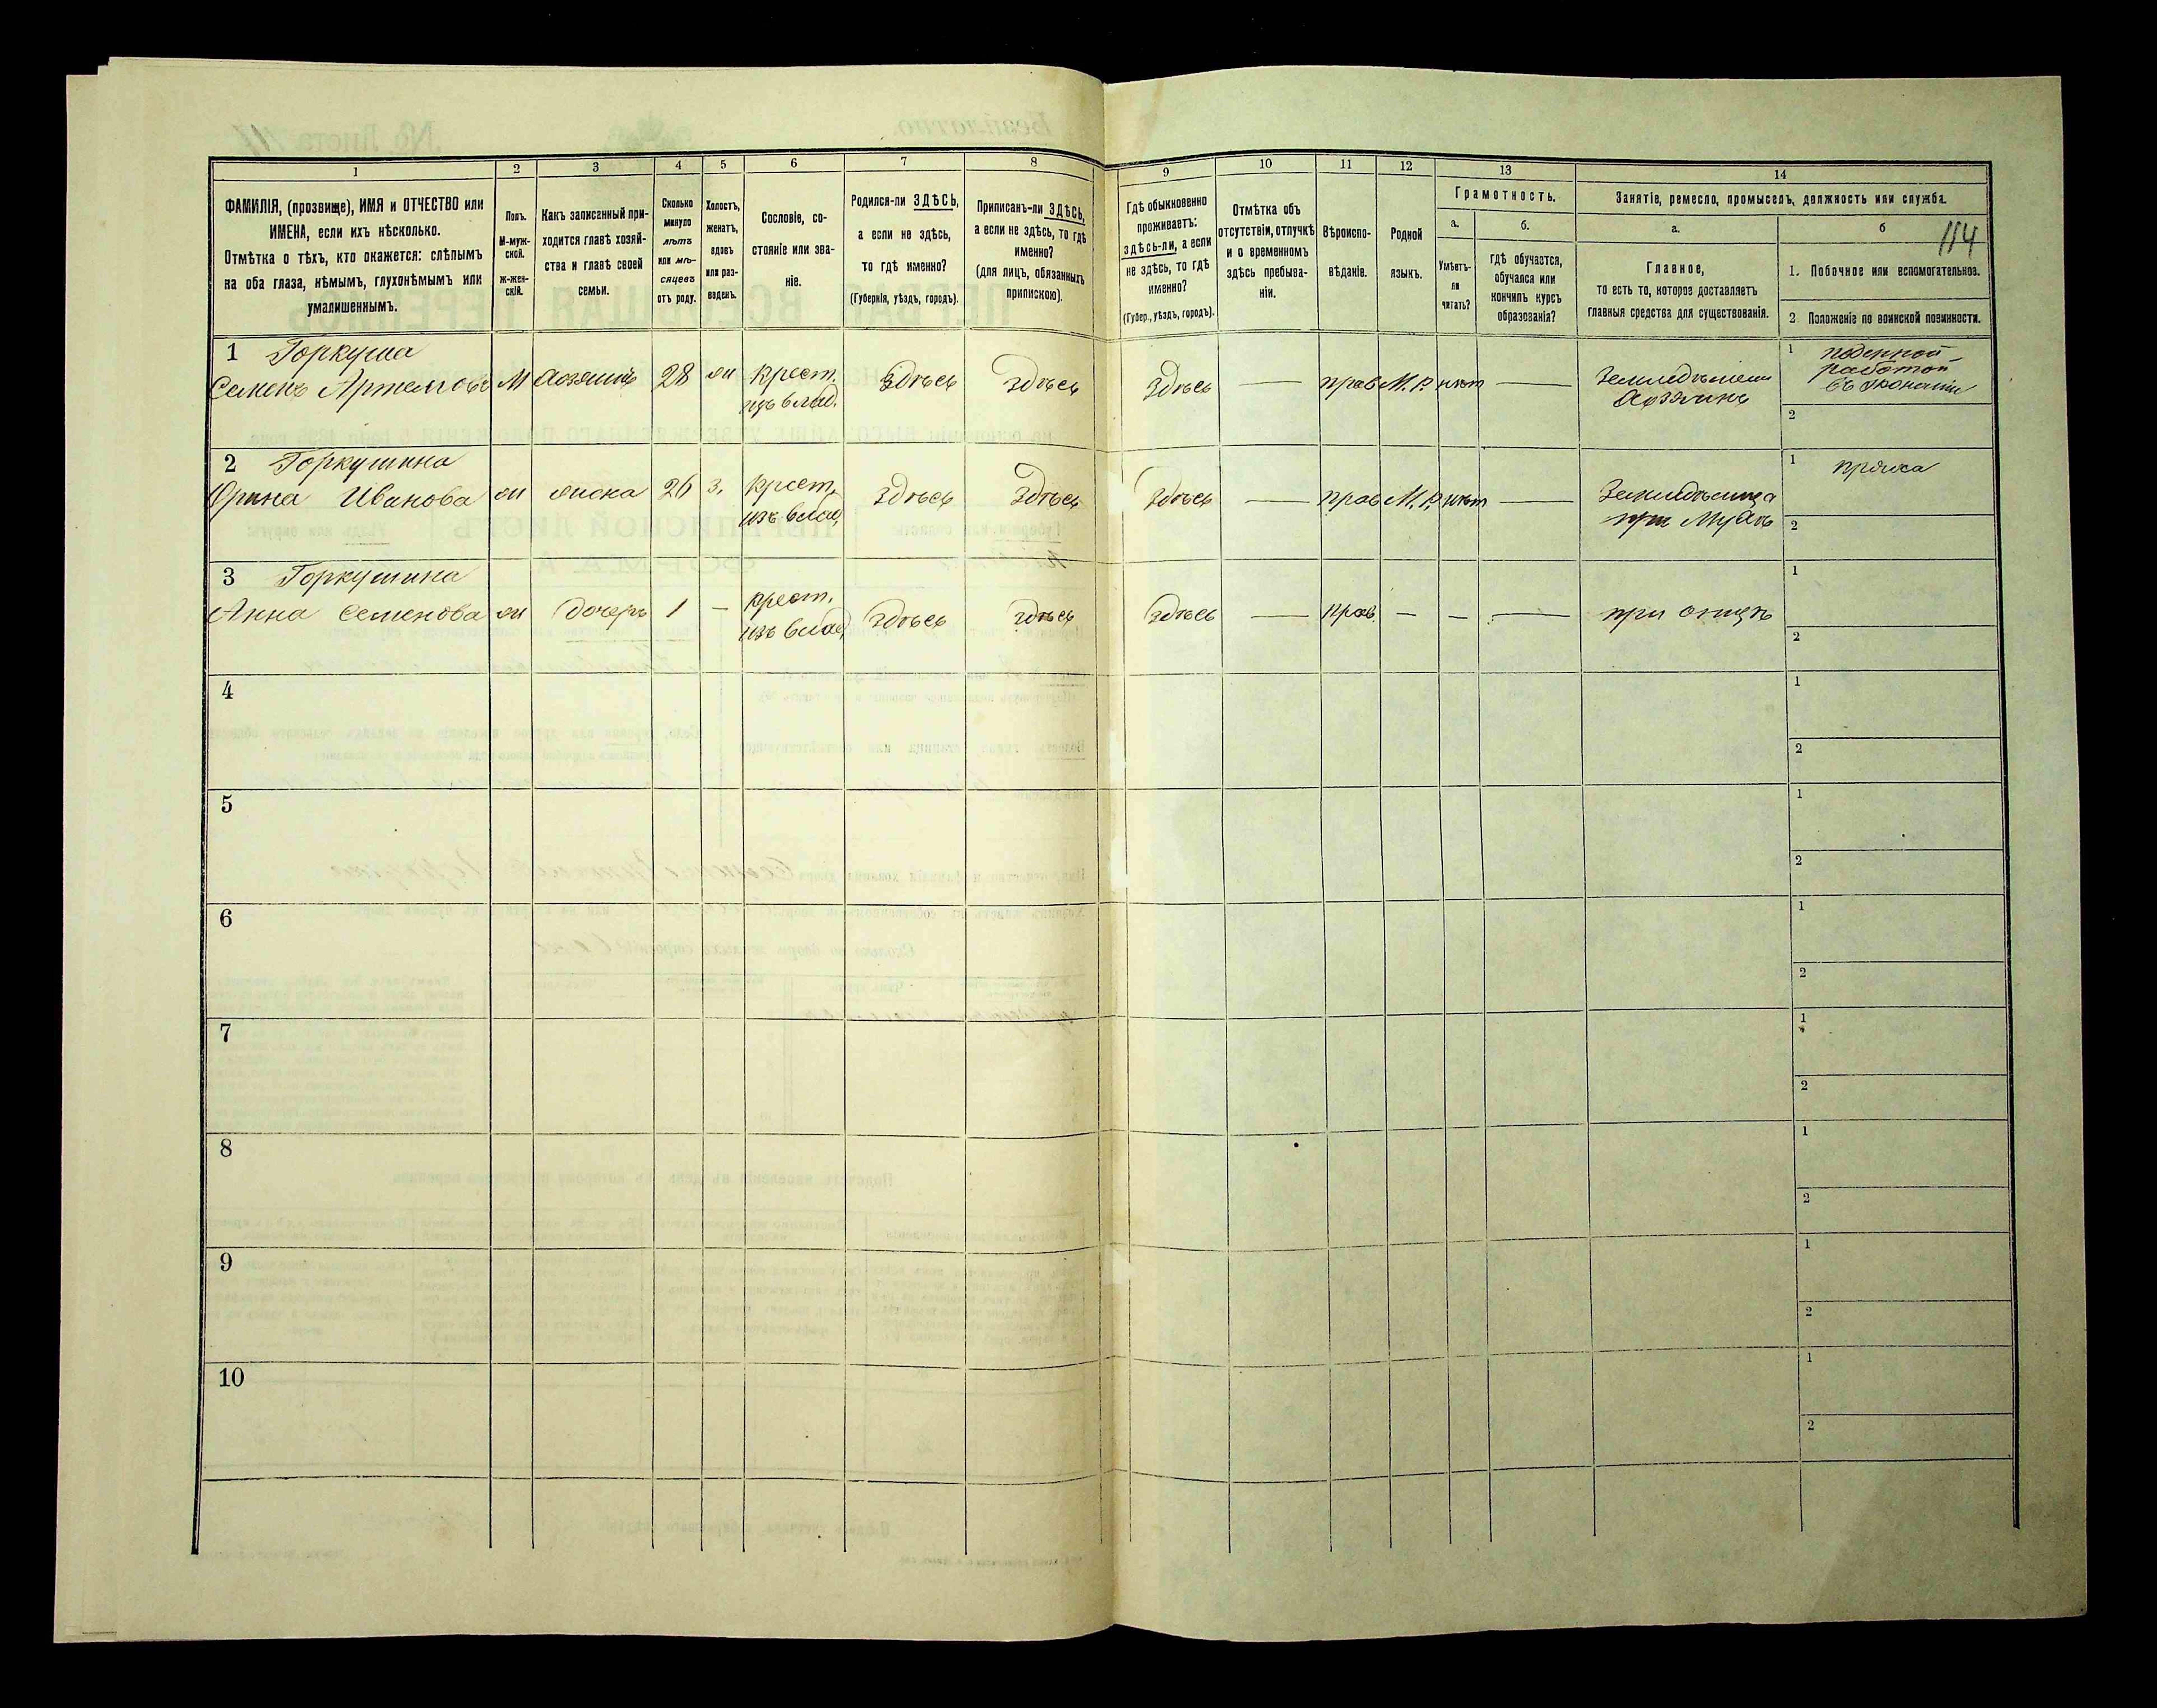 1
2
3
4
5
6
7
8
9
10
11
12
13
14
ФАМИЛІЯ, (прозвище), ИМЯ и ОТЧЕСТВО или
ИМЕНА, если ихъ нѣсколько.
Отмѣтка о тѣхъ, кто окажется: слѣпымъ
на оба глаза, нѣмымъ, глухонѣмымъ или
умалишеннымъ.
Полъ.
М-муж-
ской.
ж-жен-
скій.
Какъ записанный при-
ходится главѣ хозяй-
ства и главѣ своей
семьи.
Сколько
минуло
лѣтъ
или мѣ-
сяцевъ
отъ роду.
Холостъ,
женатъ,
вдовъ
или раз-
веденъ.
Сословіе, со-
стояніе или зва-
ніе.
Родился-ли ЗДѢСЬ,
а если не здѣсь,
то гдѣ именно?
(Губернія, уѣздъ, городъ).
Приписанъ-ли ЗДѢСЬ,
а если не здѣсь, то гдѣ
именно?
(для лицъ, обязанныхъ
припискою).
Гдѣ обыкновенно
проживаетъ:
здѣсь-ли, а если
не здѣсь, то гдѣ
именно?
(Губер., уѣздъ, городъ).
Отмѣтка объ
отсутствіи, отлучкѣ
и о временномъ
здѣсь пребыва-
ніи.
Вѣроиспо-
вѣданіе.
Родной
языкъ.
Грамотность.
а.
Умѣетъ-
ли
читать?
б.
гдѣ обучается,
обучался или
кончилъ курсъ
образованія?
Занятіе, ремесло, промыселъ, должность или служба.
а.
Главное,
то есть то, которое доставляетъ
главныя средства для существованія.
б
114
1. Побочное или вспомогательное.
2. Положеніе по воинской повинности.
1 Горкуша
Семенъ Артемовъ М хозяинъ 28 ж крест. здѣсь здѣсь здѣсь — прав М.Р. нѣтъ —
изъ влад.
хозяинъ
1 поденной
работой
въ економіи
2
2 Горкушина
Орина Иванова ж жена 26 з. крест. здѣсь здѣсь здѣсь — прав М.Р. нѣтъ —
изъ влад.
при мужѣ
1 пряха
2
3 Горкушина
Анна Семенова ж дочерь 1 — крест. здѣсь здѣсь здѣсь — прав. — — — при отцѣ
изъ влад.
1
2
4
1
2
5
1
2
6
1
2
7
1
2
8
1
2
9
1
2
10
1
2